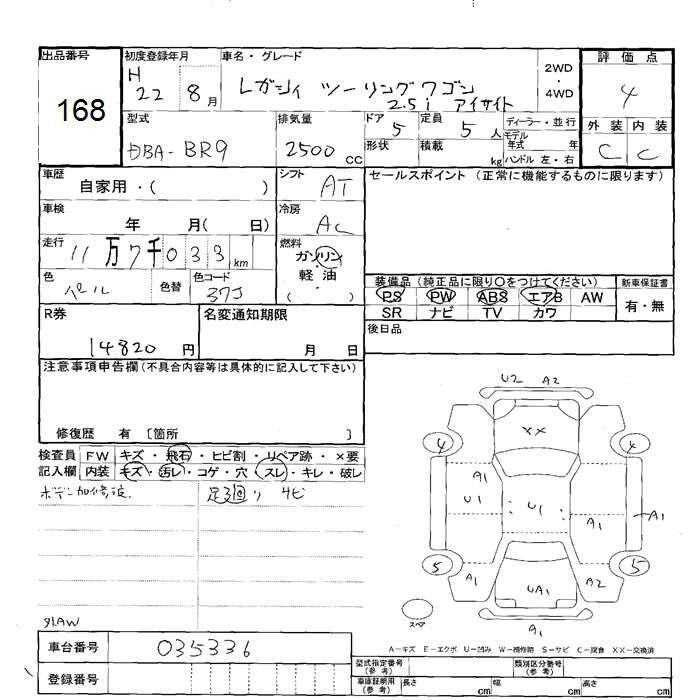 出品番号 初度登録年月 車名・グレード 2WD・4WD 評価点
168 H 22 8月 レガシィ ツーリングワゴン 2.5i アイサイト 4
型式 排気量 ドア 5 定員 5人 ディーラー・並行 外装 内装
DBA-BR9 2500CC 形状 積載 kg モデル年式 年 ハンドル 左・右 C C
車歴 シフト セールスポイント (正常に機能するものに限ります)
自家用・( ) AT
車検 冷房
年 月( 日) AC
走行 11万7千033km 燃料 ガソリン
色 パール 色替 色コード 37J 軽油 ( )
装備品 (純正品に限り○をつけてください) 新車保証書
PS PW ABS エアB AW 有・無
SR ナビ TV カワ
R券 名変通知期限 後日品
14820円 月 日
注意事項申告欄(不具合内容等は具体的に記入して下さい)
修復歴 有 〔箇所 〕
検査員 FW キズ・飛石・ヒビ割・リペア跡・×要
記入欄 内装 キズ・汚レ・コゲ・穴・スレ・キレ・破レ
足廻り サビ
U2 A2
XX
4 4
A1
U1 U1 A1 A1
5 5
A1 UA1 A2
スペア A1
A-キズ E-エクボ U-凹み W-補修跡 S-サビ C-腐食 XX-交換済
車台番号 035336
型式指定番号(参考) 類別区分番号(参考)
登録番号
車庫証明用(参考) 長さ cm 幅 cm 高さ cm